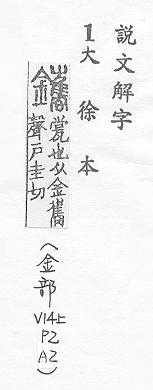 說文解字
1大徐本
鑴
瓽也从金巂
聲戶圭切
(金部V14上P2A2)